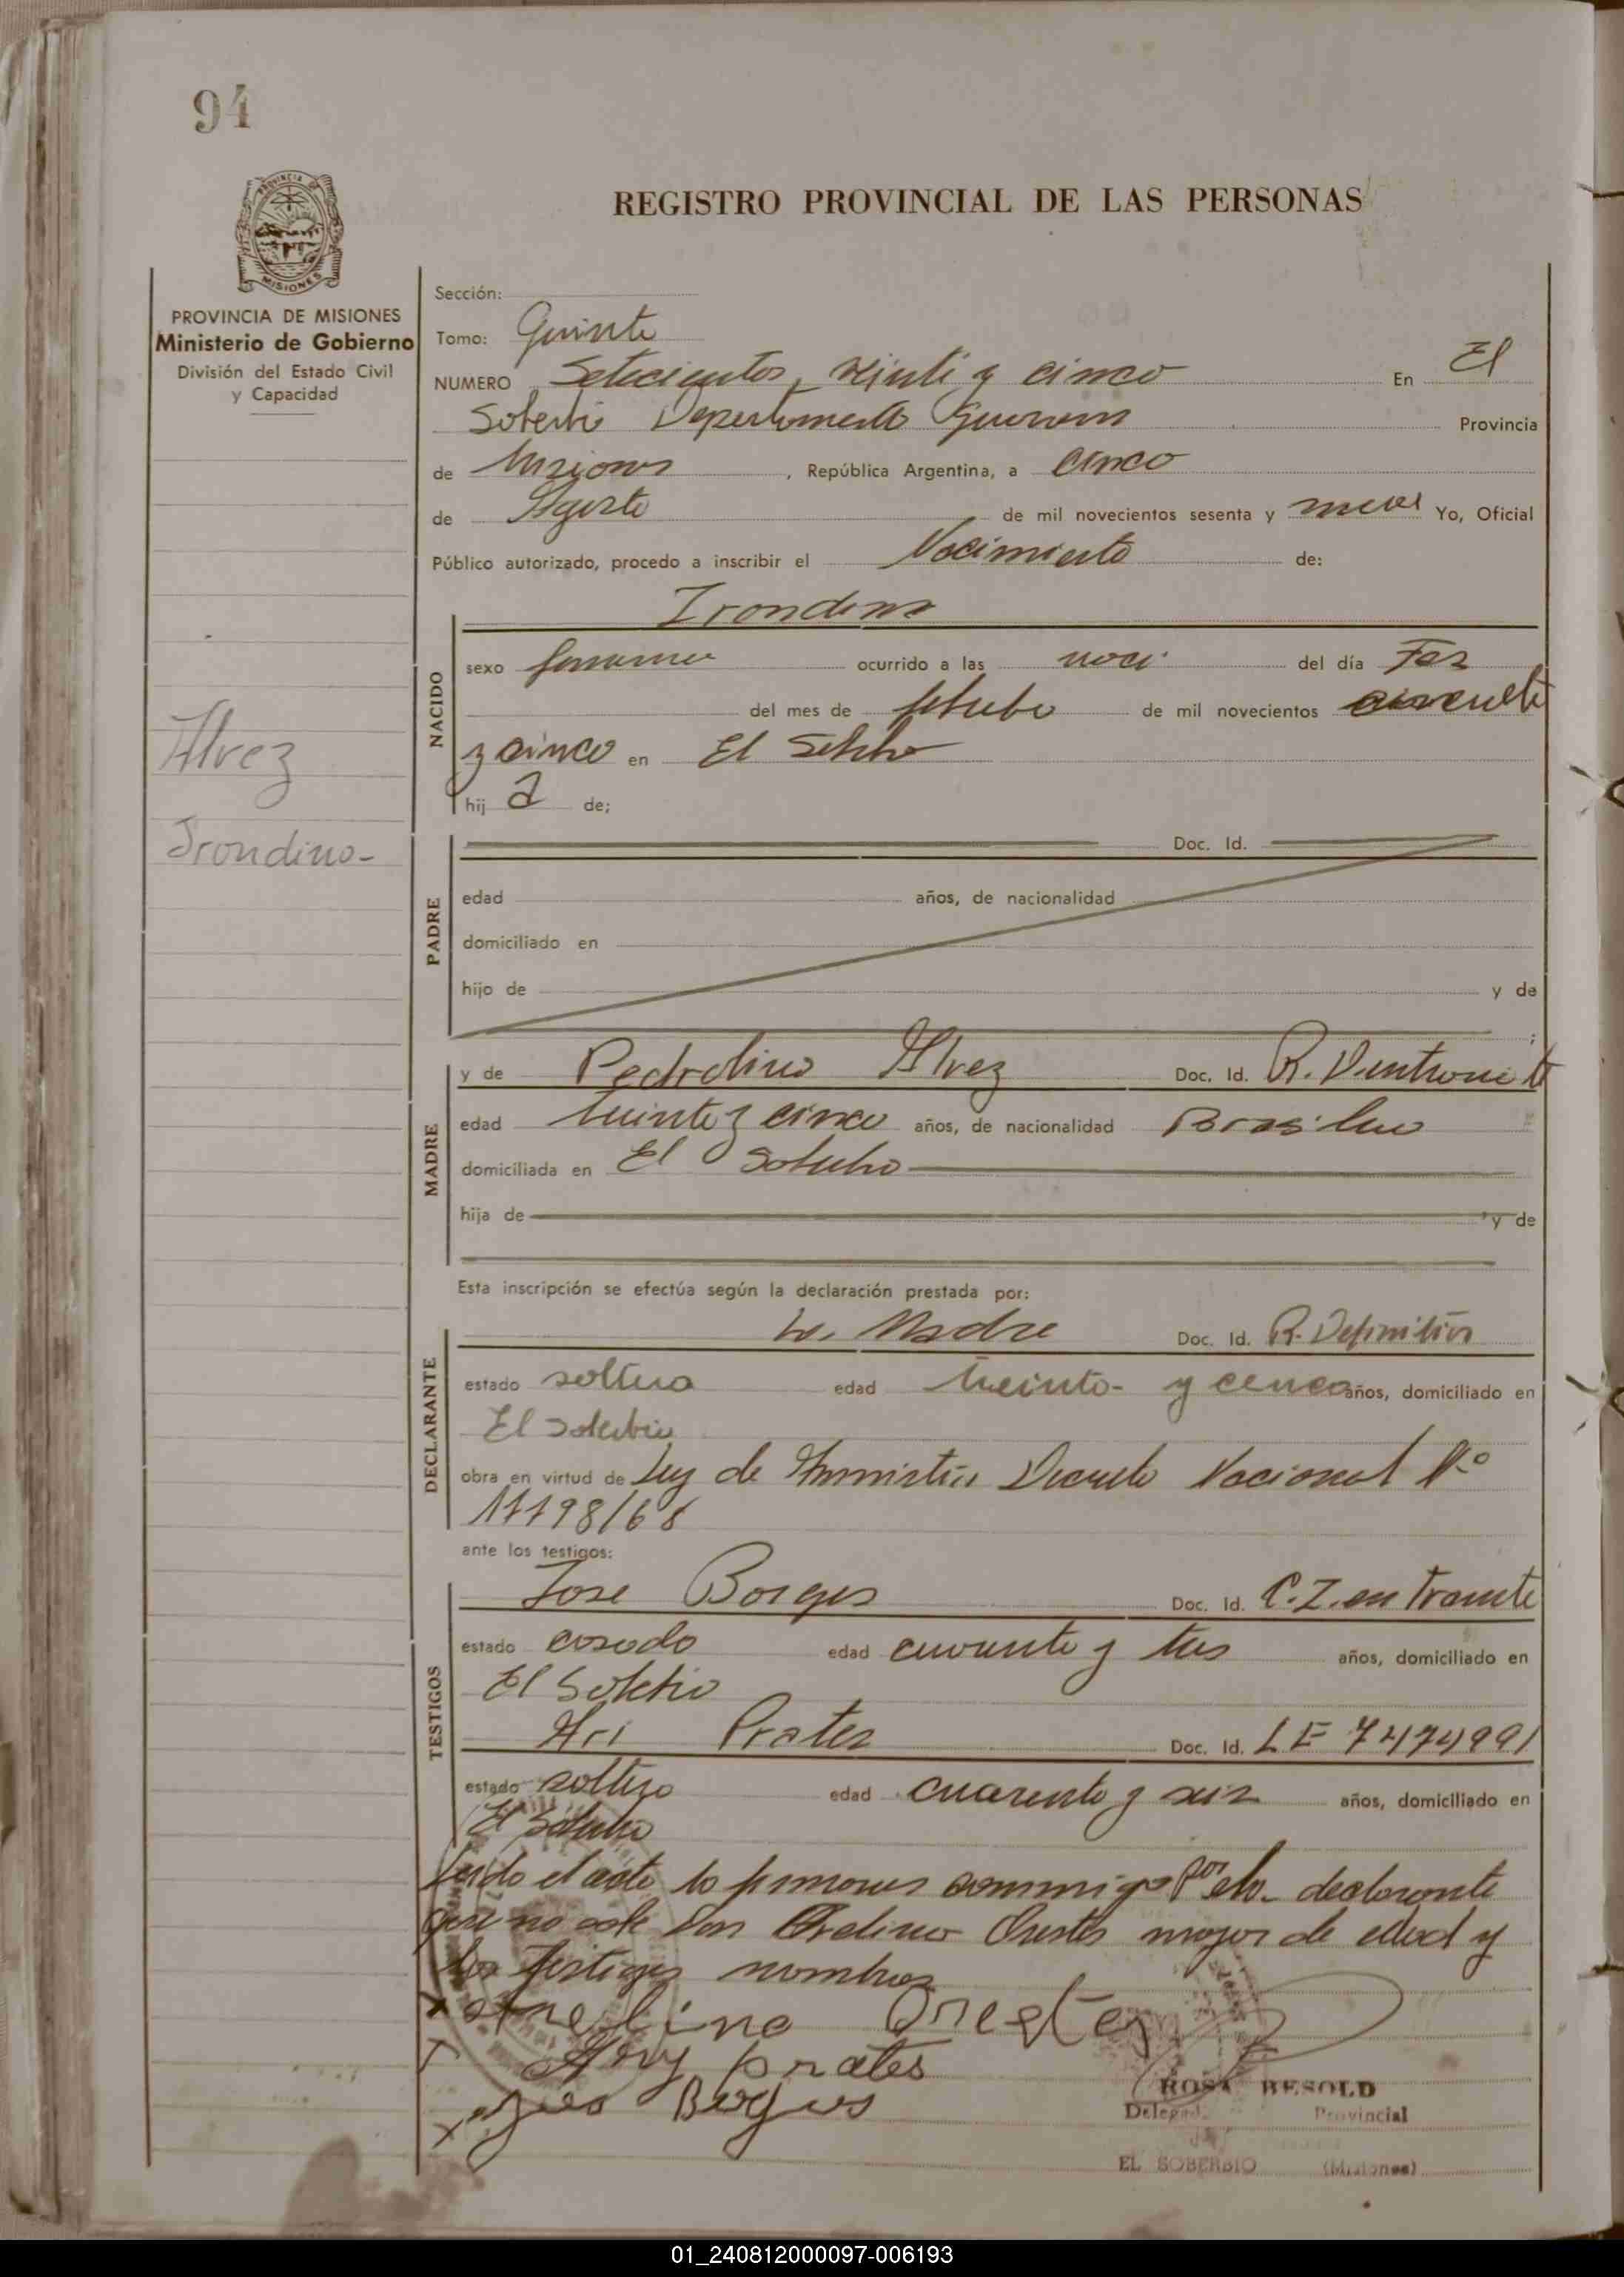 94
REGISTRO PROVINCIAL DE LAS PERSONAS
PROVINCIA DE MISIONES
Ministerio de Gobierno
División del Estado Civil
y Capacidad
Sección:
Tomo: Quinto
NUMERO Setecientos, veinti y cinco En El
Soberbio Departamento Guarani Provincia
de Misiones, República Argentina, a cinco
de Agosto de mil novecientos sesenta y nueve Yo, Oficial
Público autorizado, procedo a inscribir el Nacimiento de:
Irondina
NACIDO
sexo femenino ocurrido a las del día
del mes de de mil novecientos cincuenta
y cinco en El Soberbio
hij a de;
Alvez
Irondina-
PADRE
Doc. Id.
edad años, de nacionalidad
domiciliado en
hijo de y de
;
MADRE
y de Pedrolina Alvez Doc. Id. R.
edad treinta y cinco años, de nacionalidad Brasilera
domiciliada en El Soberbio
hija de y de
Esta inscripción se efectúa según la declaración prestada por:
DECLARANTE
La Madre Doc. Id. R. Definitiva
estado soltera edad treinta- y cinco años, domiciliado en
El Soberbio
obra en virtud de Ley de Amnistia Decreto Nacional Nº
17798/68
ante los testigos:
TESTIGOS
Jose Borges Doc. Id. C.I. en Tramite
estado casado edad cuarenta y tres años, domiciliado en
El Soberbio
Ari Prates Doc. Id. LE 7474991
estado soltero edad cuarenta y seis años, domiciliado en
El Soberbio
Leido el acta lo firmaron conmigo Por la declarante
que no sabe Orestes mayor de edad y
los testigos nombrados
Orestes
Ary prates
Borges
ROSA BESOLD
Delegad Provincial
EL SOBERBIO (Misiones)
01_240812000097-006193